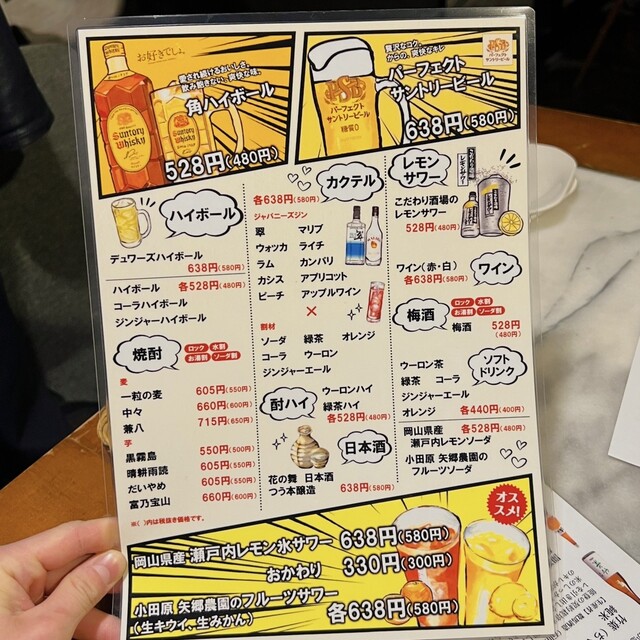 お好きでしょ。
愛され続けるおいしさ。
飲み飽きない、爽快な味。
角ハイボール
528円(480円)
SUNTORY
WHISKY
贅沢なコク、
からの、爽快なキレ
パーフェクト
サントリービール
638円(580円)
パーフェクト
サントリービール
糖質0
パーフェクト
サントリービール
ハイボール
デュワーズハイボール
638円(580円)
ハイボール 各528円(480円)
コーラハイボール
ジンジャーハイボール
焼酎
ロック 水割
お湯割 ソーダ割
麦
一粒の麦 605円(550円)
中々 660円(600円)
兼八 715円(650円)
芋
黒霧島 550円(500円)
晴耕雨読 605円(550円)
だいやめ 605円(550円)
富乃宝山 660円(600円)
※( )内は税抜き価格です。
カクテル
各638円(580円)
ジャパニーズジン
翠 マリブ
ウォッカ ライチ
ラム カンパリ
カシス アプリコット
ピーチ アップルワイン
×
割材
ソーダ 緑茶 オレンジ
コーラ ウーロン
ジンジャーエール
酎ハイ
ウーロンハイ
緑茶ハイ
各528円(480円)
日本酒
花の舞 日本酒
つう本醸造 638円(580円)
レモン
サワー
こだわり酒場の
レモンサワー
528円(480円)
ワイン(赤・白)
各638円(580円)
ワイン
梅酒
ロック 水割
お湯割 ソーダ割
梅酒 528円
(480円)
ソフト
ドリンク
ウーロン茶
緑茶 コーラ
ジンジャーエール
オレンジ 各440円(400円)
岡山県産 各528円(480円)
瀬戸内レモンソーダ
小田原 矢郷農園の
フルーツソーダ
オス
スメ!
岡山県産 瀬戸内レモン氷サワー 638円(580円)
おかわり 330円(300円)
小田原 矢郷農園のフルーツサワー
(生キウイ、生みかん) 各638円(580円)